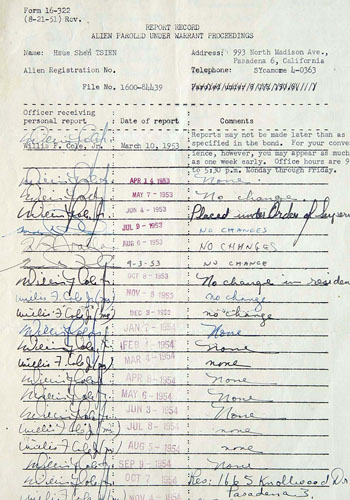 Form 16-322
(8-21-51) Rev.
REPORT RECORD
ALIEN PAROLED UNDER WARRANT PROCEEDINGS
Name: Hsue Shen TSIEN
Address: 993 North Madison Ave.,
Pasadena 6, California
Alien Registration No.
Telephone: SYcamore 4-0363
File No. 1600-84439
Paroled under
Officer receiving personal report
Date of report
Comments
Willis F. Cole, Jr. March 10, 1953
Reports may not be made later than as
specified in the bond. If for your conve
ience, however, you may appear as much
as one week early. Office hours are 9
to 5:30 p.m. Monday through Friday.
APR 14 1953 None.
MAY 7 - 1953 No change.
JUN 4 - 1953 Placed under Order of Superv
JUL 9 - 1953 NO CHANGES
AUG 6 - 1953 NO CHANGES
9-3-53 NO CHANGE
Willis F Cole Jr OCT 8 - 1953 No change in residen
Willis F. Cole Jr NOV - 5 1953 no change
Willis F. Cole Jr DEC 3 - 1953 no change
JAN 7 - 1954 None
Willis F. Cole Jr FEB 4 - 1954 None
Willis F. Cole Jr MAR 4 - 1954 none
APR 8 - 1954 None
MAY 6 - 1954 None
JUN 3 - 1954 None
Willis F. Cole Jr JUL 8 - 1954 none
Willis F. Cole Jr AUG 5 - 1954 none
SEP 9 - 1954 None
OCT 7 - 1954 Res: 166 S Knollwood Dr
Pasadena 3.
NOV 4 - 1954